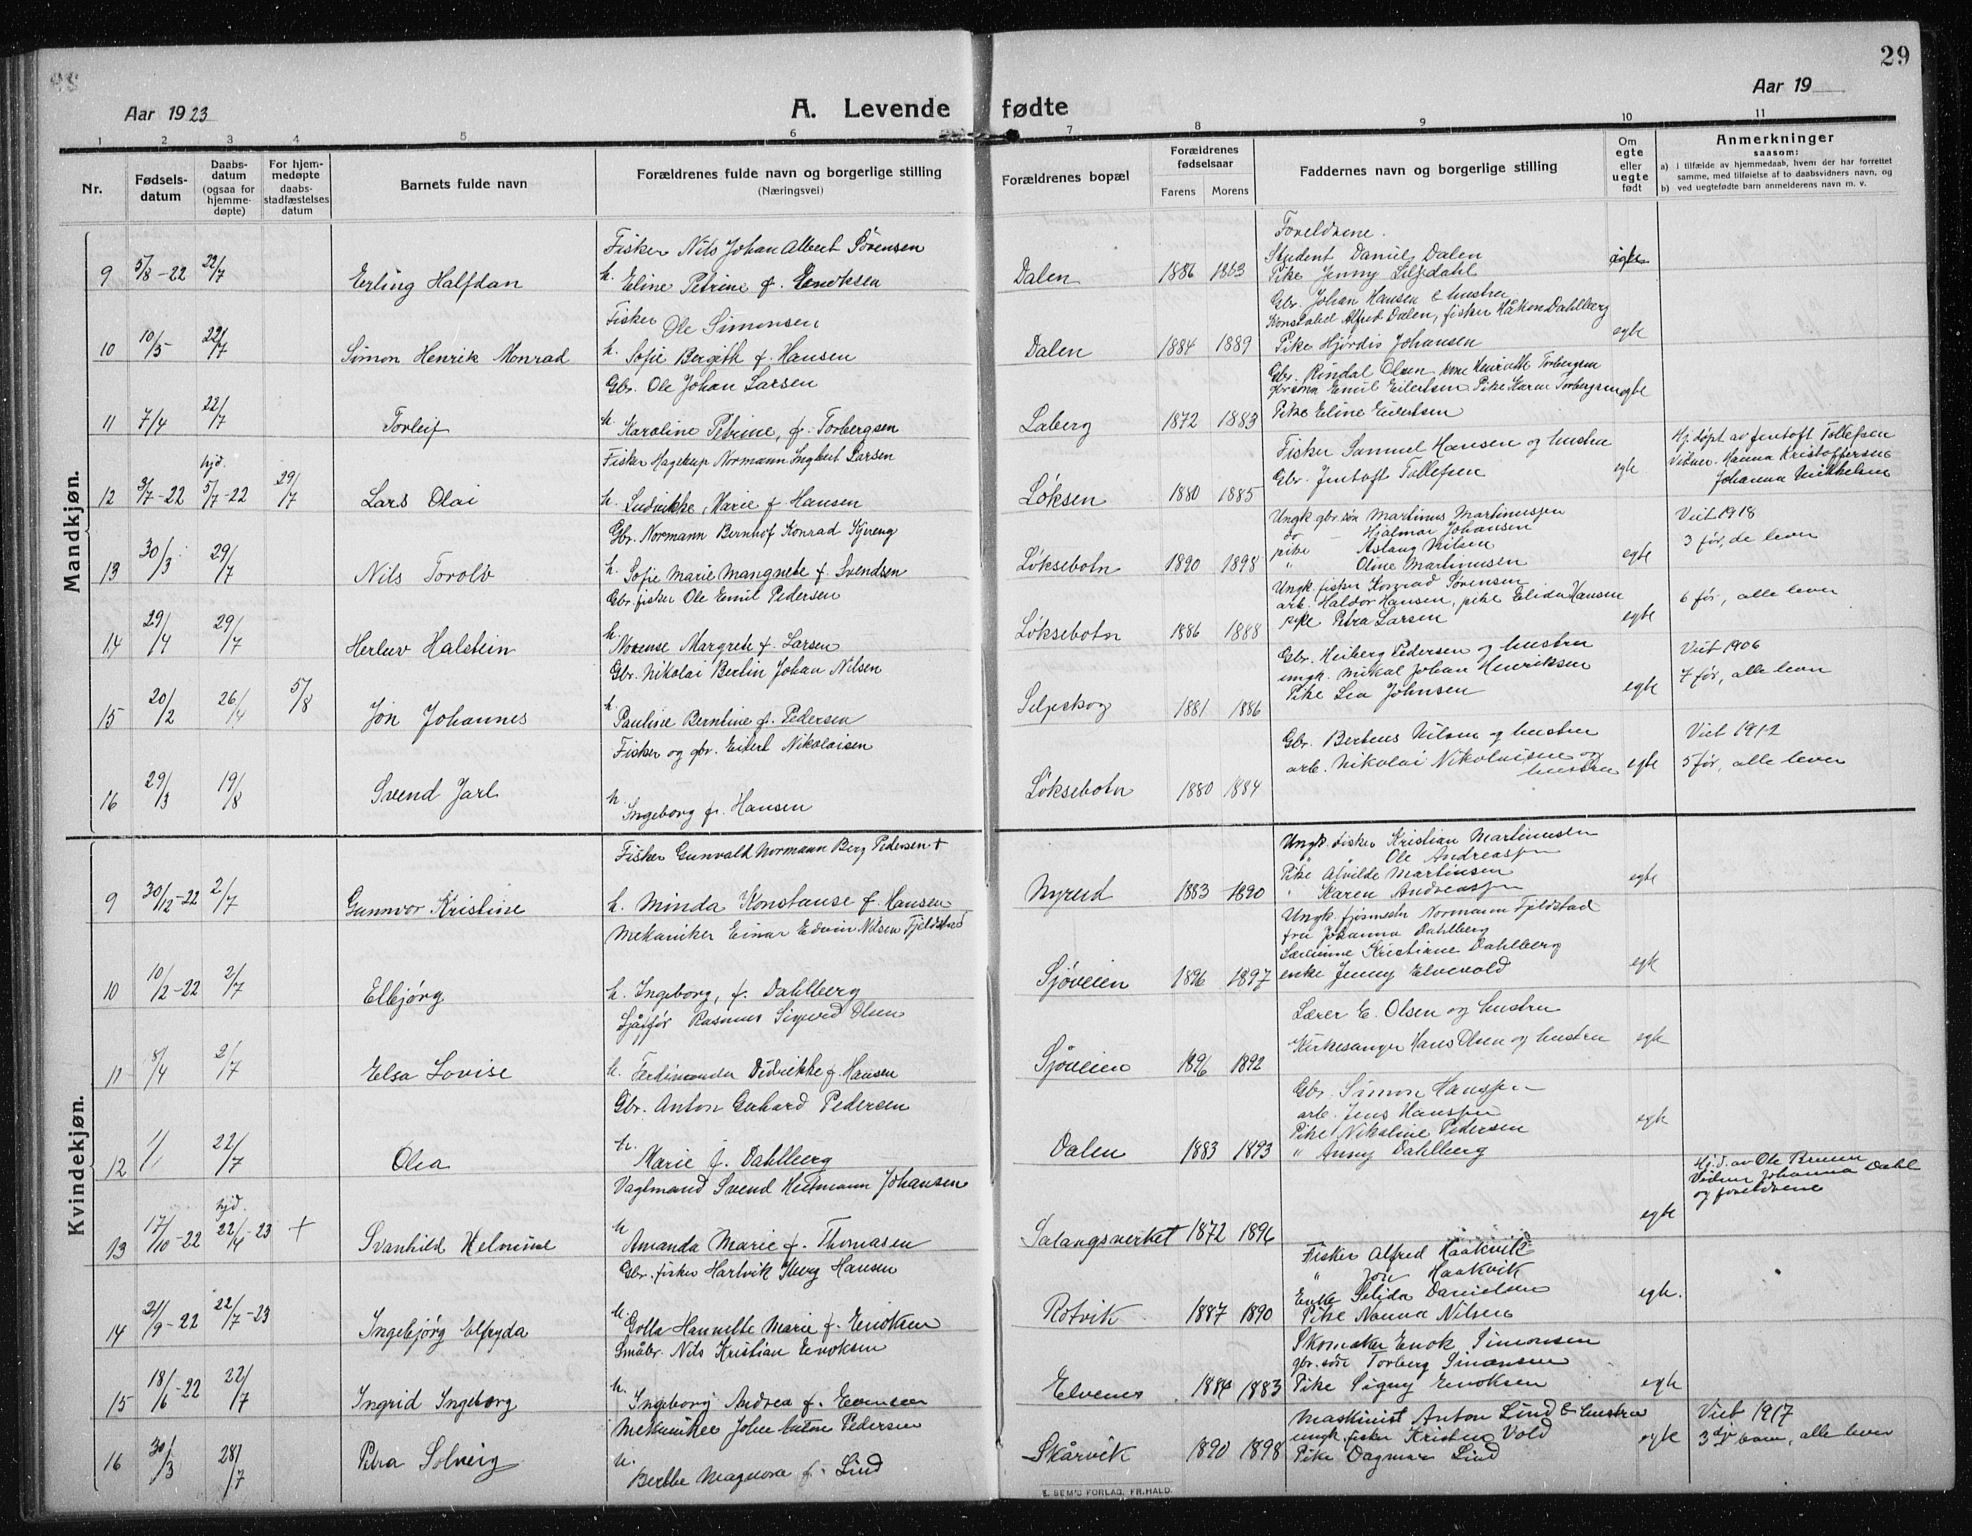 29
Aar 1923
A. Levende fødte
Aar 19
1 2 3 4 5 6 7 8 9 10 11
Nr.
Fødsels-datum
Daabs-datum (ogsaa for hjemme-døpte)
For hjem-medøpte daabs-stadfæstelses datum
Barnets fulde navn
Forældrenes fulde navn og borgerlige stilling
(Næringsvei)
Forældrenes bopæl
Forældrenes fødselsaar
Farens Morens
Faddernes navn og borgerlige stilling
Om egte eller uegte født
Anmerkninger
saasom:
a) i tilfælde av hjemmedaab, hvem der har forrettet samme, med tilføielse af to daabsvidners navn, og
b) ved uegtefødte barn anmelderens navn m. v.
Mandkjøn.
Fisker Nils Johan Albert Sørensen
9 5/8-22 22/7 Erling Halfdan h. Eline Petrine f. Enoksen Dalen 1886 1883 egte
Foreldrene.
Student Daniel Dalen
Pike Jenny Liljedahl
Fisker Ole Simonsen
10 10/5 22/7 Simon Henrik Monrad h. Sofie Bergith f. Hansen Dalen 1884 1889 egte
Gbr. Johan Hansen & hustru
Konstabel Alfred Dalen, fisker Håkon Dahlberg
Pike Hjørdis Johansen
Gbr. Ole Johan Larsen
11 7/4 22/7 Torleif h. Karoline Petrine, f. Torbergsen Laberg 1872 1883 egte
Gbr. Rindal Olsen, Henriette Torbergsen
Emil Eilertsen Pike Karen Torbergsen
Pike Eline Eilertsen
Fisker Hagekup Normann Ingbert Larsen
12 3/7-22 hjd. 5/7-22 29/7 Lars Olai h. Ludvikke, Marie f Hansen Løksen 1880 1885 egte
Fisker Samuel Hansen og hustru
Gbr. Jentoft Tollefsen
Hj. døpt av Jentoft Tollefsen
Vitner. Hanna Kristoffersen
Johanna Mikkelsen
Gbr. Normann Bernhof Konrad Kjereng
13 30/3 29/7 Nils Torolv h. Sofie Marie Mangnete f Svendsen Løksebotn 1890 1898 egte
Ungk gbr. søn Martinus Martinussen
do Hjalmar Johansen
pike Aslaug Nilsen
" Oline Martinusen
Viet 1918
3 før, de lever
Gbr. fisker Ole Emil Pedersen
14 29/4 29/7 Herluv Halstein h. Margrete f. Larsen Løksebotn 1886 1888 egte
Ungk. fisker Konrad Sørensen
arb. Haldor Hansen, pike Elida Hansen
pike Petra Larsen
6 før, alle lever
Gbr. Nikolai Bertin Johan Nilsen
15 20/2 26/4 5/8 Jon Johannes h. Pauline Berntine f. Pedersen Selpskog 1881 1886 egte
Gbr. Heiberg Pedersen og hustru
ungk. Mikal Johan Henriksen
Pike Lea Johnsen
Viet 1906
7 før, alle lever
Fisker og gbr. Eilert Nikolaisen
16 29/3 19/8 Svend Jarl h. Ingeborg f. Hansen Løksebotn 1880 1884 egte
Gbr. Berteus Nilsen og hustru
arb. Nikolai Nikolaisen og hustru
Viet 1912
5 før, alle lever
Kvindekjøn.
Fisker Gunvald Normann Berg Pedersen +
9 30/12-22 2/7 Gunnvor Kristine h. Minda Konstanse f. Hansen Nyrud 1883 1890 egte
Ungk. fisker Kristian Martinusen
" Ole Andreassen
Pike Alvilde Martinsen
" Karen Andreassen
Mekaniker Einar Edvin Nilsen Fjeldstad
10 10/2-22 2/7 Elbjørg h. Ingeborg, f. Dahlberg Sjøveien 1896 1897 egte
Ungk. fjøsmester Normann Fjeldstad
fru Johanna Dahlberg
Lærerinne Kristiane Dahlberg
enke Jenny Elvevold
Sjåfør Rasmus Sigurd Olsen
11 8/4 2/7 Elsa Lovise h. Ferdinanda Didrikke f. Hansen Sjøveien 1896 1892 egte
Lærer E. Olsen og hustru
Kirkesanger Hans Olsen og hustru
Gbr. Anton Gerhard Pedersen
12 1/1 22/7 Olea h. Marie f. Dahlberg Dalen 1883 1893 egte
Gbr. Simon Hanssen
arb. Jens Hanssen
Pike Nikoline Pedersen
" Anny Dahlberg
Vagtmand Svend Heitmann Johansen
13 17/10-22 hjd. 22/4-23 + Svanhild Helmine h. Amanda Marie f. Thomasen Salangsverket 1872 1896 egte
Hj. d. av Ole Bruun
Vidner Johanna Dahl
og foreldrene
Gbr. fisker Hartvik Hansen
14 21/9-22 22/7-23 Ingebjørg Elfryda h. Golla Hannette Marie f. Enoksen Rotvik 1887 1890 egte.
Fisker Alfred Haakvik
" Jon Haakvik
Enke Selida Danielsen
Pike Nanna Nilsen
Småbr. Nils Kristian Enoksen
15 18/6-22 22/7 Ingrid Ingeborg h. Ingeborg Andrea f. Evensen Elvenes 1884 1883 egte
Skomaker Enok Simonsen
gbr. søn Torberg Simonsen
Pike Signy Enoksen
Mekaniker Johan Anton Pedersen
16 30/3 28/7 Petra Solveig h. Berthe Magnora f. Lind Skårvik 1890 1898 egte
Maskinist Anton Lind & hustru
ungk. fisker Kristen Vold
Pike Dagmar Lind
Viet 1917
3dje barn, alle lever
E. SEM'S FORLAG, FR.HALD.